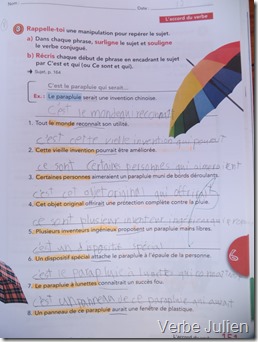 L'accord du verbe
Rappelle-toi une manipulation pour repérer le sujet.
a) Dans chaque phrase, surligne le sujet et souligne
le verbe conjugué.
b) Récris chaque début de phrase en encadrant le sujet
par C'est et qui (ou Ce sont et qui).
Sujet, p. 164
C'est le parapluie qui serait...
Ex.: Le parapluie serait une invention chinoise.
C'est le monde qui reconnait
1. Tout le monde reconnaît son utilité.
c'est cette vieille invention qui
2. Cette vieille invention pourrait être améliorée.
ce sont certaines personnes qui
3. Certaines personnes aimeraient un parapluie muni de bords déroulants.
c'est cet objet original qui
4. Cet objet original offrirait une protection complète contre la pluie.
ce sont plusieurs
5. Plusieurs inventeurs ingénieux proposent un parapluie mains libres.
spécial
6. Un dispositif spécial attache le parapluie à l'épaule de la personne.
c'est le parapluie à lunettes qui
7. Le parapluie à lunettes connaîtrait un succès fou.
parapluie qui
8. Un panneau de ce parapluie aurait une fenêtre de plastique.
6
Verbe Julien